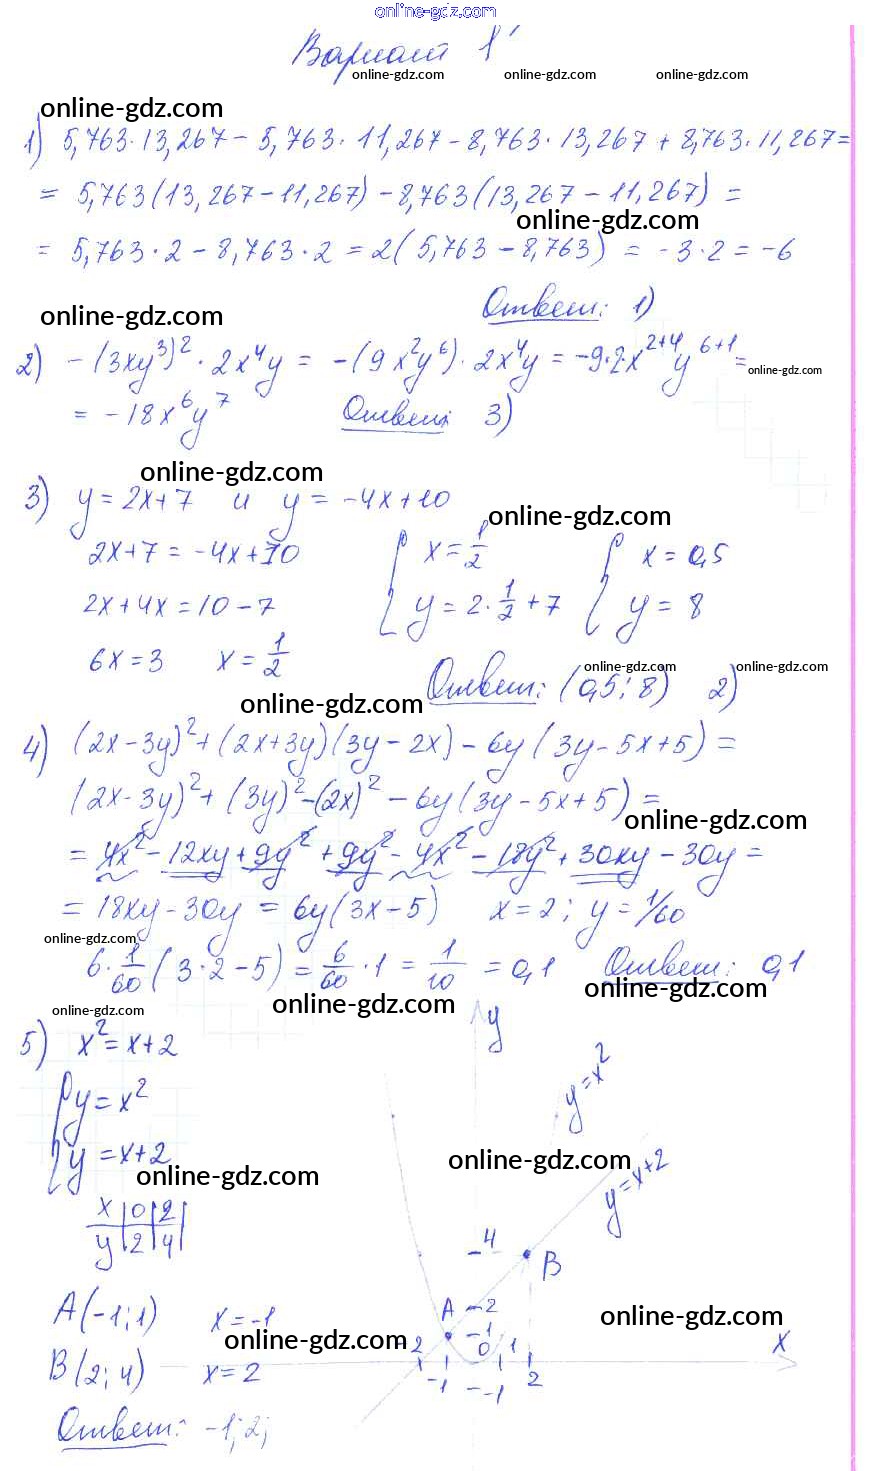 online-gdz.com
Вариант 1'
online-gdz.com online-gdz.com online-gdz.com
online-gdz.com
1) 5,763·13,267 − 5,763·11,267 − 8,763·13,267 + 8,763·11,267 =
= 5,763(13,267 − 11,267) − 8,763(13,267 − 11,267) =
online-gdz.com
= 5,763·2 − 8,763·2 = 2(5,763 − 8,763) = −3·2 = −6
Ответ: 1)
online-gdz.com
2) −(3xy³)²·2x⁴y = −(9x²y⁶)·2x⁴y = −9·2·x²⁺⁴y⁶⁺¹ =
online-gdz.com
= −18x⁶y⁷ Ответ: 3)
online-gdz.com
3) y = 2x+7 и y = −4x+10
online-gdz.com
2x+7 = −4x+10 { x = 1/2 { x = 0,5
2x+4x = 10−7 y = 2·1/2+7 y = 8
6x = 3 x = 1/2
online-gdz.com online-gdz.com
Ответ: (0,5; 8) 2)
online-gdz.com
4) (2x−3y)²+(2x+3y)(3y−2x)−6y(3y−5x+5) =
(2x−3y)²+(3y)²−(2x)²−6y(3y−5x+5) =
online-gdz.com
= 4x²−12xy+9y²+9y²−4x²−18y²+30xy−30y =
= 18xy−30y = 6y(3x−5) x = 2; y = 1/60
online-gdz.com
6·1/60(3·2−5) = 6/60·1 = 1/10 = 0,1 Ответ: 0,1
online-gdz.com
online-gdz.com
online-gdz.com
5) x² = x+2
y
{ y = x²
y = x+2
y=x²
online-gdz.com
online-gdz.com
y=x+2
x 0 2
y 2 4
4
B
A(−1;1) x = −1
A −2
online-gdz.com
online-gdz.com
−1
0 1
x
B(2;4) x = 2
2
−1
−1
2
Ответ: −1; 2;